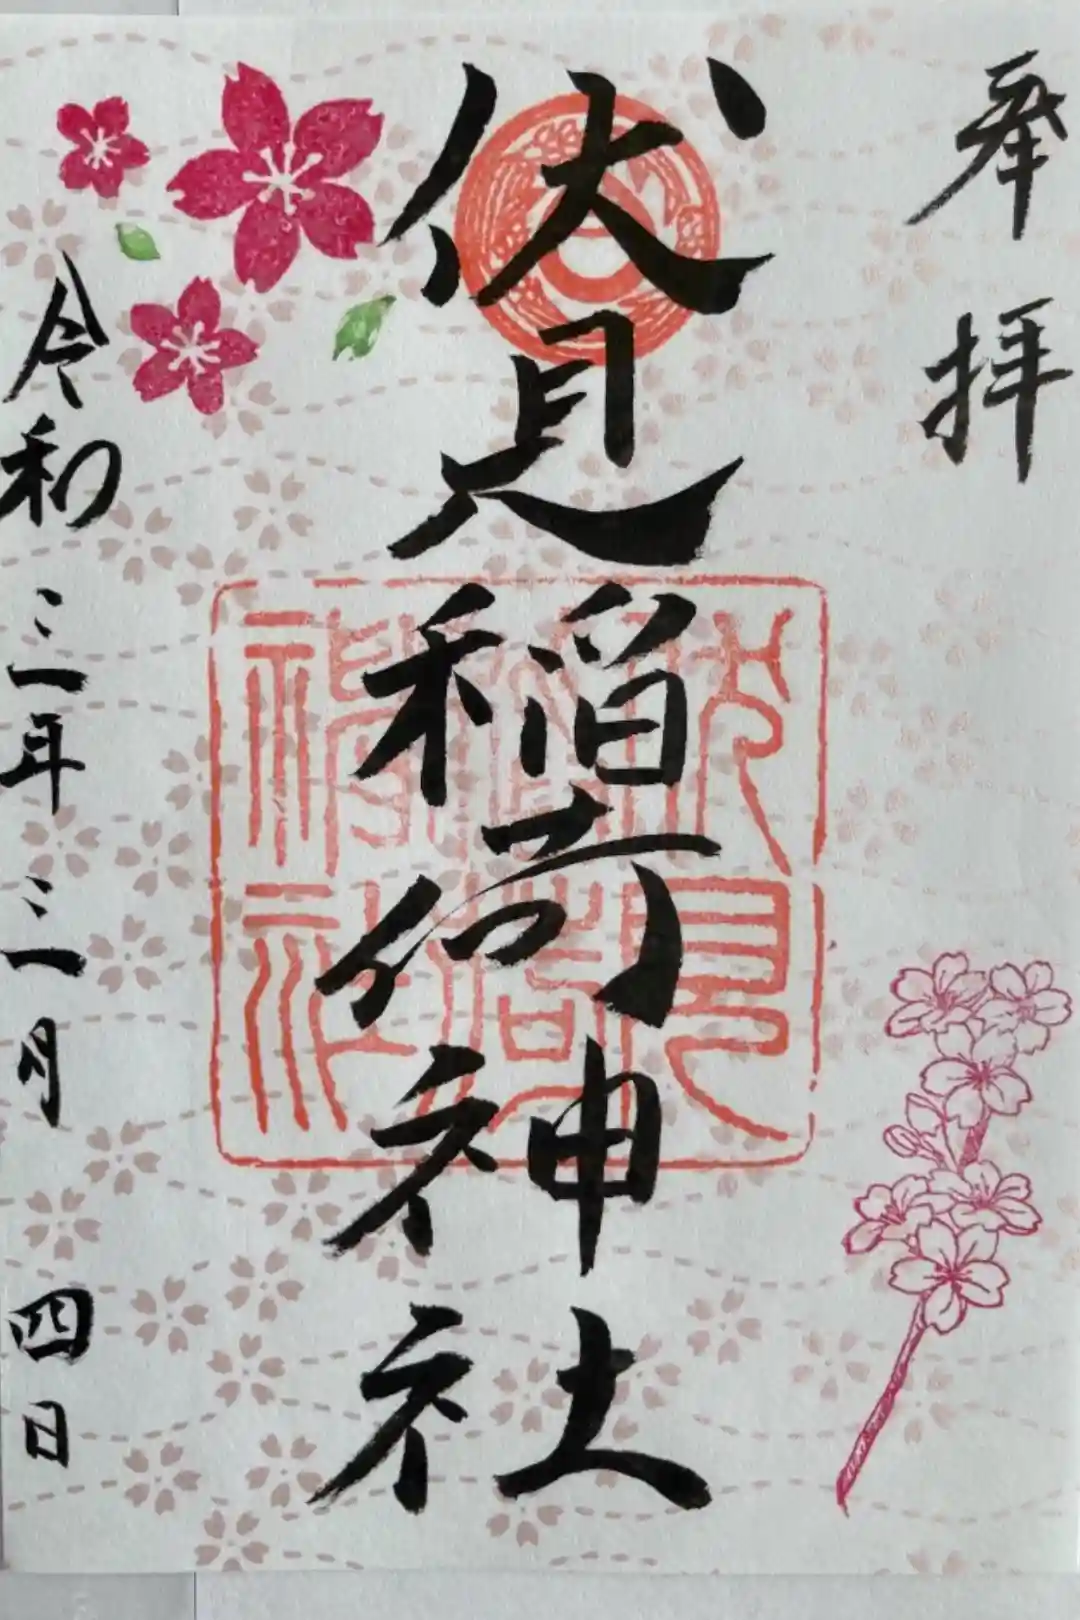 奉拝
伏見稲荷神社
伏見
稲荷
神社
令和三年三月四日